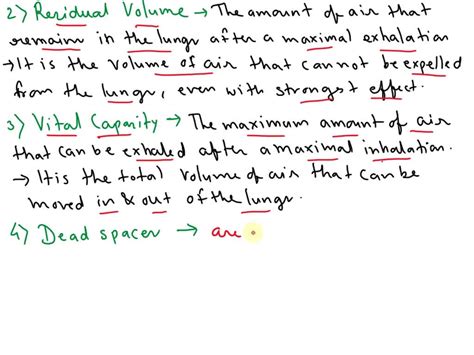 2) Residual Volume → The amount of air that
remains in the lungs after a maximal exhalation
→ It is the volume of air that cannot be expelled
from the lungs, even with strongest effect.
3) Vital Capacity → The maximum amount of air
that can be exhaled after a maximal inhalation.
→ It is the total volume of air that can be
moved in & out of the lungs.
4) Dead spaces → are